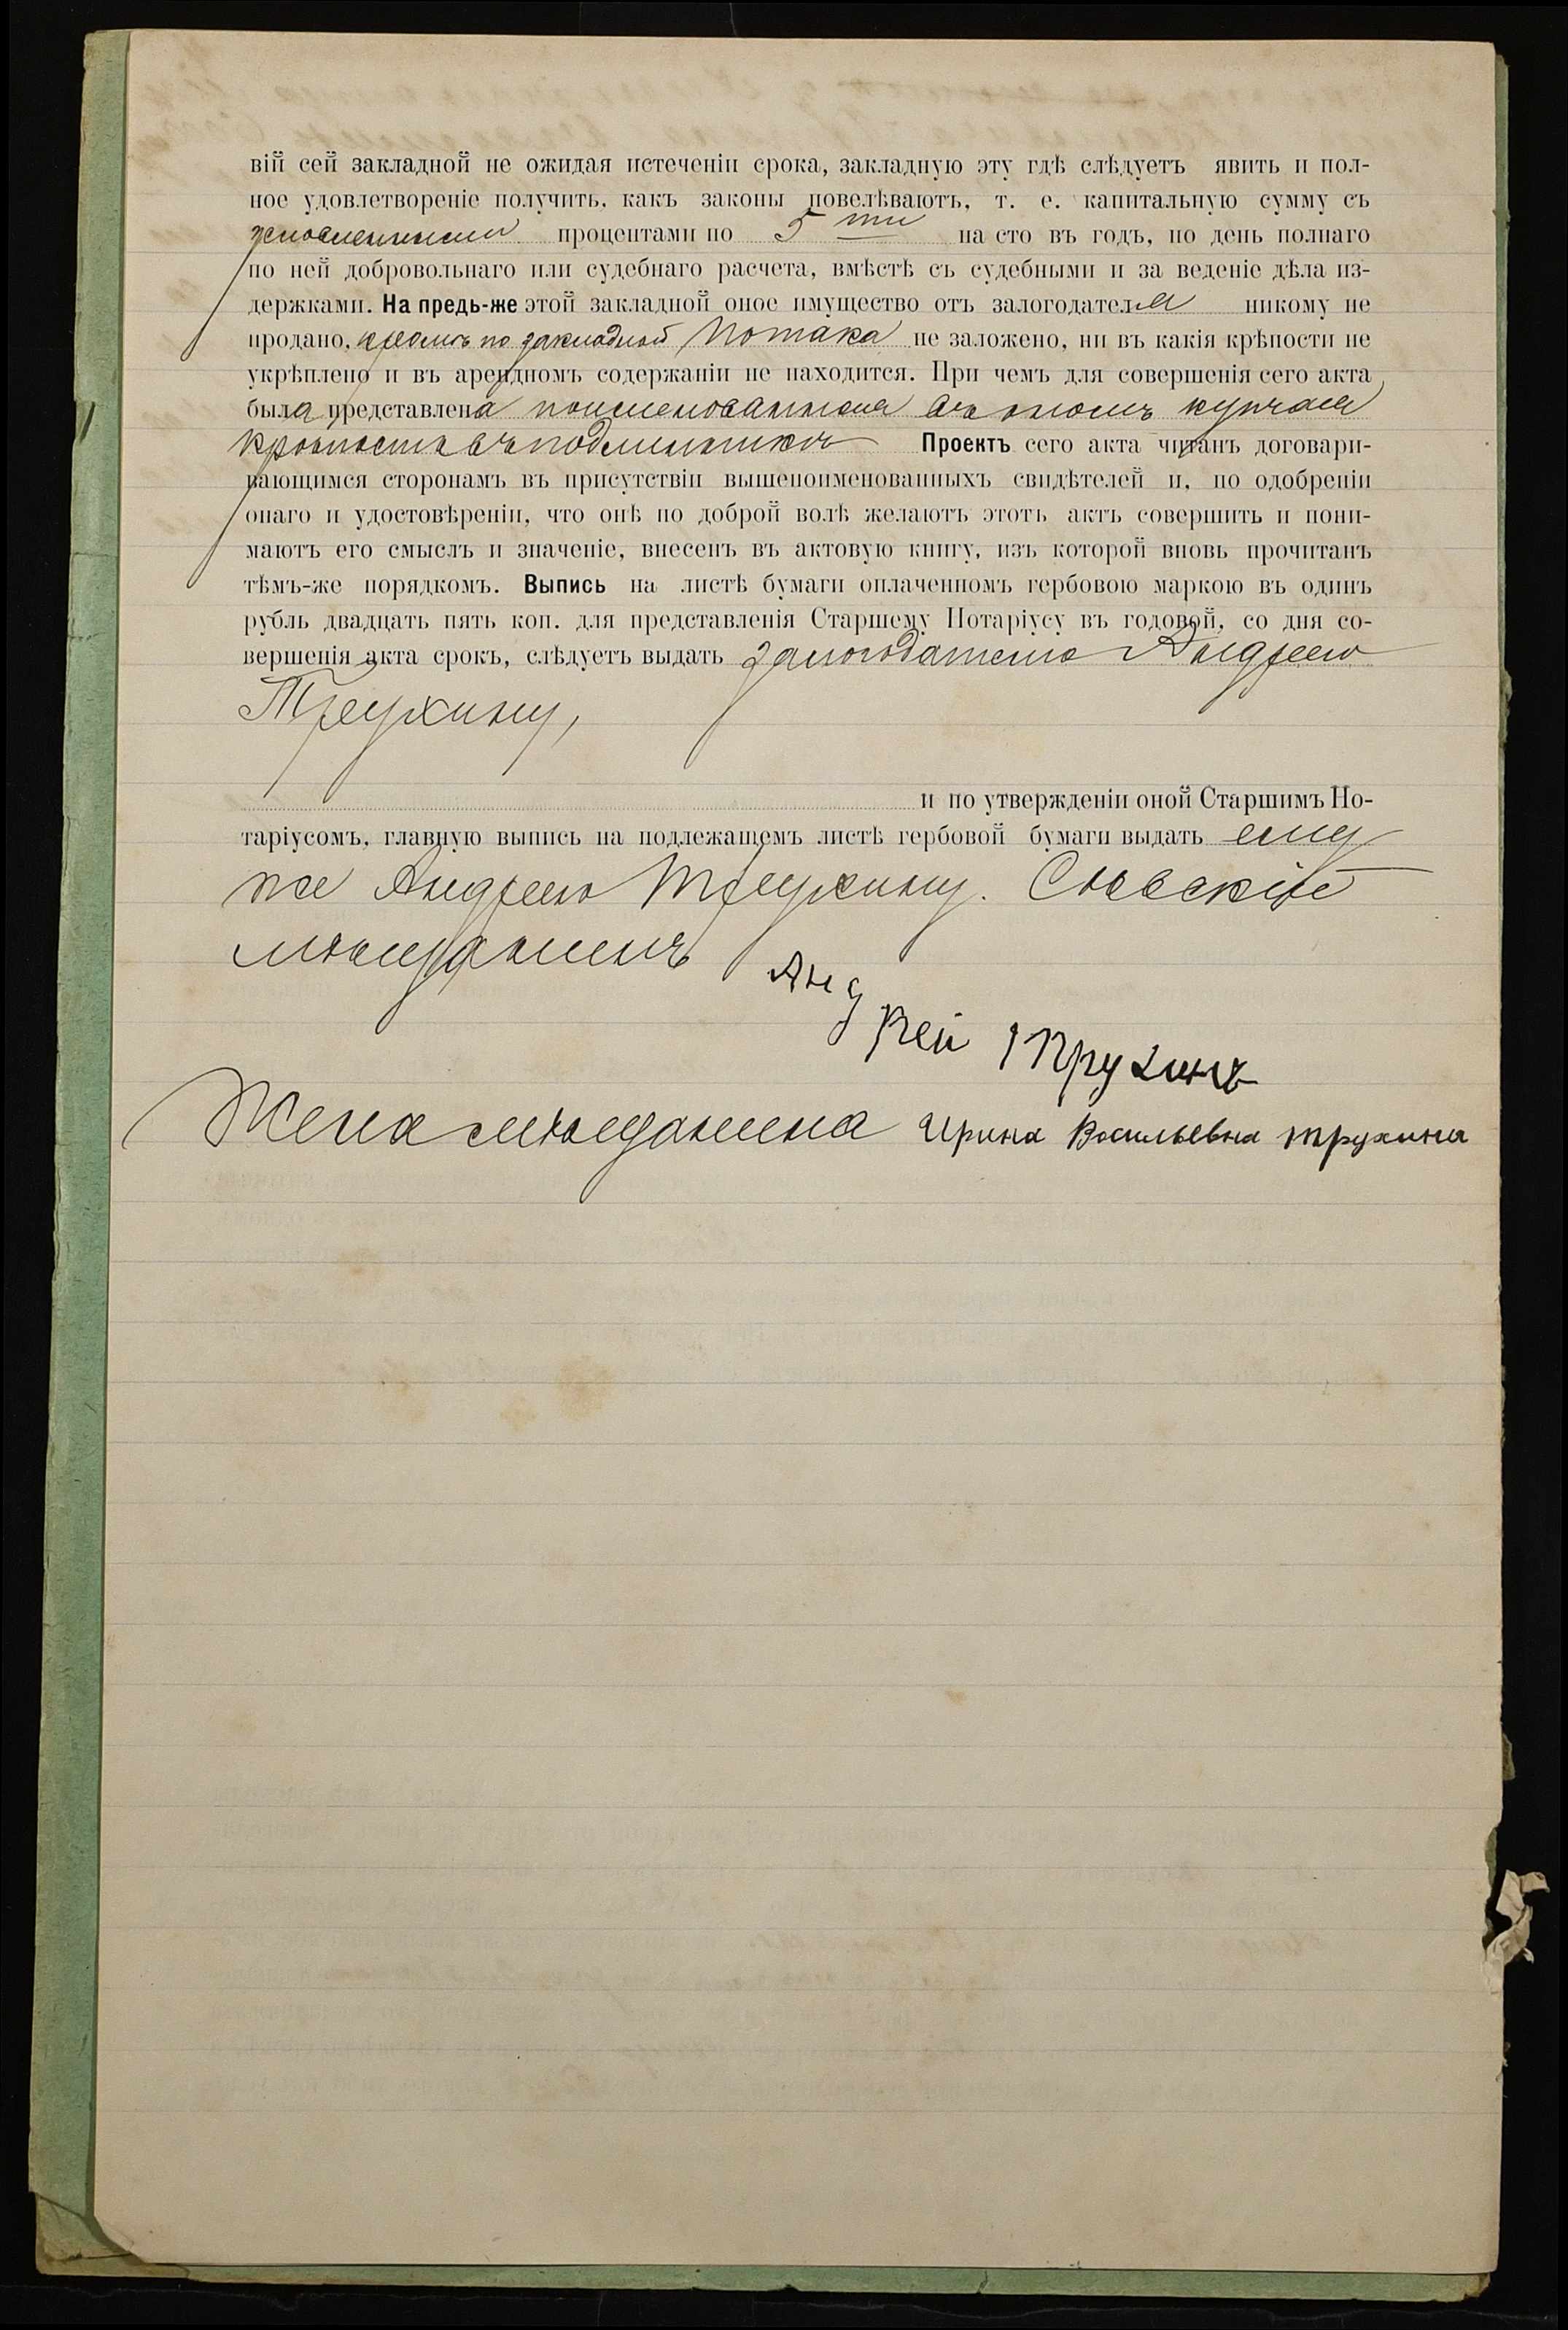 вій сей закладной не ожидая истеченіи срока, закладную эту гдѣ слѣдуетъ явить и пол-
ное удовлетвореніе получить, какъ законы повелѣваютъ, т. е. капитальную сумму съ
процентами по 5 ти на сто въ годъ, по день полнаго
по ней добровольнаго или судебнаго расчета, вмѣстѣ съ судебными и за веденіе дѣла из-
держками. На предь-же этой закладной оное имущество отъ залогодателя никому не
продано, кромѣ по закладной Потака не заложено, ни въ какія крѣпости не
укрѣплено и въ арендномъ содержаніи не находится. При чемъ для совершенія сего акта
была представлена поименованная въ ономъ купчая
крѣпость въ подлинникѣ Проектъ сего акта читанъ договари-
вающимся сторонамъ въ присутствіи вышепоименованныхъ свидѣтелей и, по одобреніи
онаго и удостовѣреніи, что онѣ по доброй волѣ желаютъ этотъ актъ совершить и пони-
маютъ его смыслъ и значеніе, внесенъ въ актовую книгу, изъ которой вновь прочитанъ
тѣмъ-же порядкомъ. Выпись на листѣ бумаги оплаченномъ гербовою маркою въ одинъ
рубль двадцать пять коп. для представленія Старшему Нотаріусу въ годовой, со дня со-
вершенія акта срокъ, слѣдуетъ выдать залогодателю Андрею
Трухину,
и по утвержденіи оной Старшимъ Но-
таріусомъ, главную выпись на подлежащемъ листѣ гербовой бумаги выдать ему
же Андрею Трухину. Сѣвскій
мѣщанинъ Анд
рей Трухинъ
Жена мѣщанина Ирина Васильевна трухина